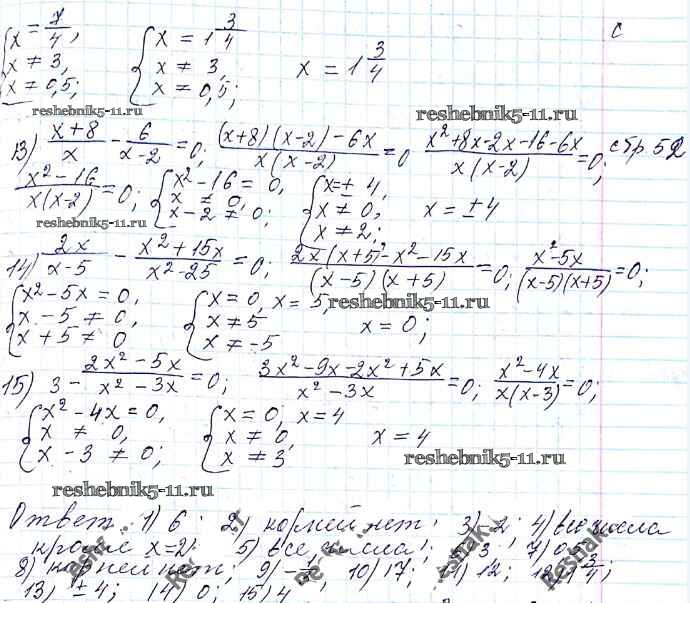 { x = 7/4, x ≠ 3, x ≠ 0,5; { x = 1 3/4 x ≠ 3, x ≠ 0,5; x = 1 3/4
с
reshebnik5-11.ru
reshebnik5-11.ru
13) (x+8)/x - 6/(x-2) = 0; ((x+8)(x-2)-6x)/(x(x-2)) = 0 (x²+8x-2x-16-6x)/(x(x-2)) = 0; стр 52
(x²-16)/(x(x-2)) = 0; { x²-16 = 0, x ≠ 0, x-2 ≠ 0; { x = ± 4, x ≠ 0, x ≠ 2; x = ±4
reshebnik5-11.ru
14) 2x/(x-5) - (x²+15x)/(x²-25) = 0; (2x(x+5)-x²-15x)/((x-5)(x+5)) = 0; (x²-5x)/((x-5)(x+5)) = 0;
{ x²-5x = 0, x-5 ≠ 0, x+5 ≠ 0 { x = 0, x = 5, x ≠ 5 x ≠ -5 x = 0;
reshebnik5-11.ru
15) 3 - (2x²-5x)/(x²-3x) = 0; (3x²-9x-2x²+5x)/(x²-3x) = 0; (x²-4x)/(x(x-3)) = 0;
{ x²-4x = 0, x ≠ 0, x-3 ≠ 0; { x = 0; x = 4 x ≠ 0, x ≠ 3 x = 4
reshebnik5-11.ru
reshebnik5-11.ru
Ответ: 1) 6; 2) корней нет; 3) -2; 4) все числа
кроме x=2; 5) все числа; 3 7) 0
8) корней нет; 9) 10) 17; 11) 12; 3/4;
13) ±4; 14) 0; 15) 4